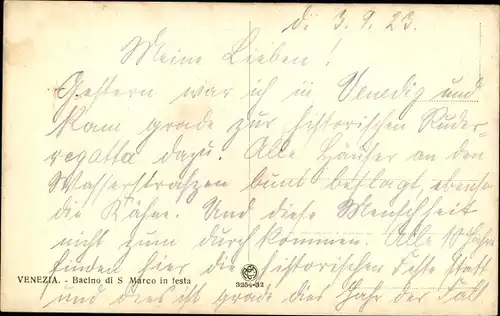 d. 3.9.23.
Meine Lieben!
Gestern war ich in Venedig und
kam grade zur historischen Ruder-
regatta dazu. Alle Häuser an den
Wasserstraßen bunt beflagt, ebenso
die Kähne. Und diese Menschheit
nicht zum durchkommen. Alle 10 Jahre
finden hier die historischen Feste statt
und dies ist grade dies Jahr der Fall
VENEZIA. - Bacino di S Marco in festa
3254-32